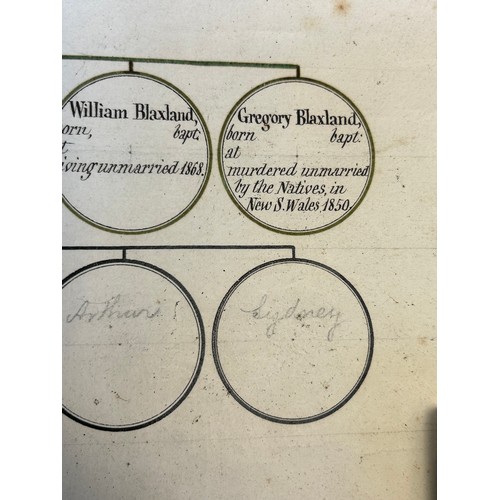 William Blaxland,
orn, bapt:
t
iving unmarried 1868.
Gregory Blaxland,
born bapt:
at
murdered unmarried
by the Natives, in
New S. Wales 1850.
Sydney